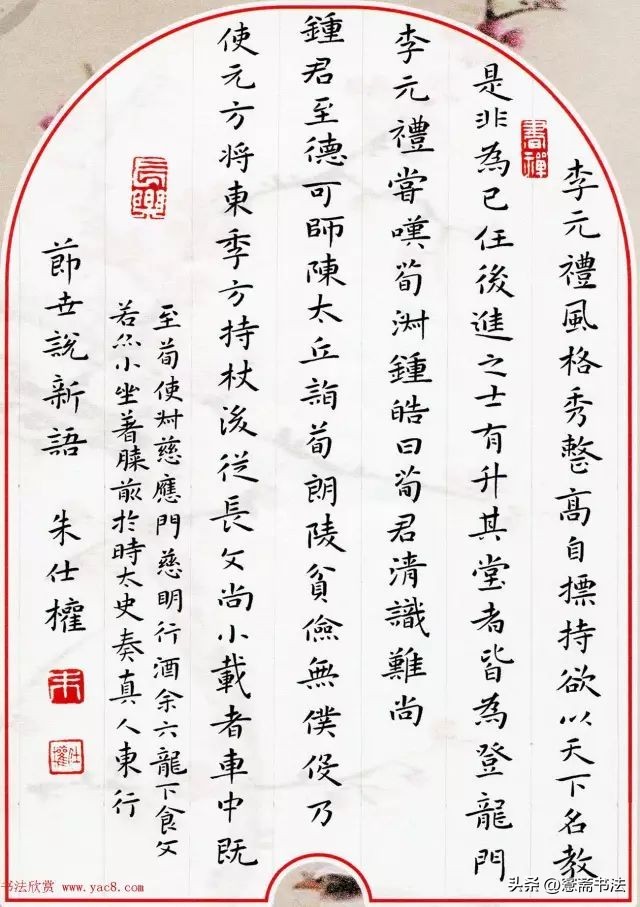 書禪
李元禮風格秀整高自摽持欲以天下名教
是非為己任後進之士有升其堂者皆為登龍門
李元禮嘗嘆荀淑鍾皓曰荀君清識難尚
鍾君至德可師陳太丘詣荀朗陵貧儉無僕役乃
使元方将東季方持杖後從長文尚小載著車中既
長樂
至荀使叔慈應門慈明行酒余六龍下食文
若亦小坐著膝前於時太史奏真人東行
節世說新語 朱仕權
朱
仕權
书法欣赏 www.yac8.com
头条 @斋书法